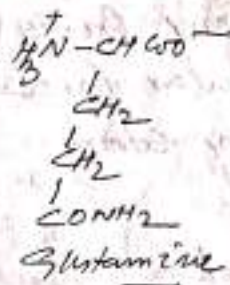 H₃N⁺-CH COO⁻
CH₂
CH₂
CONH₂
Glutamine